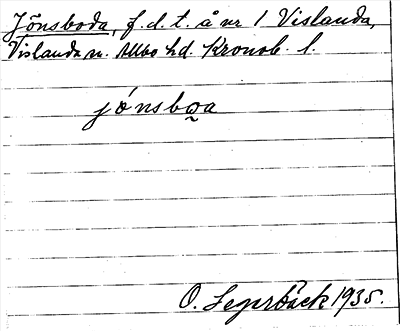 Jönsboda, f.d.t. å nr 1 Vislanda,
Vislanda sn. Allbo hd. Kronob. l.
jónsbo̰a
O. 1935.